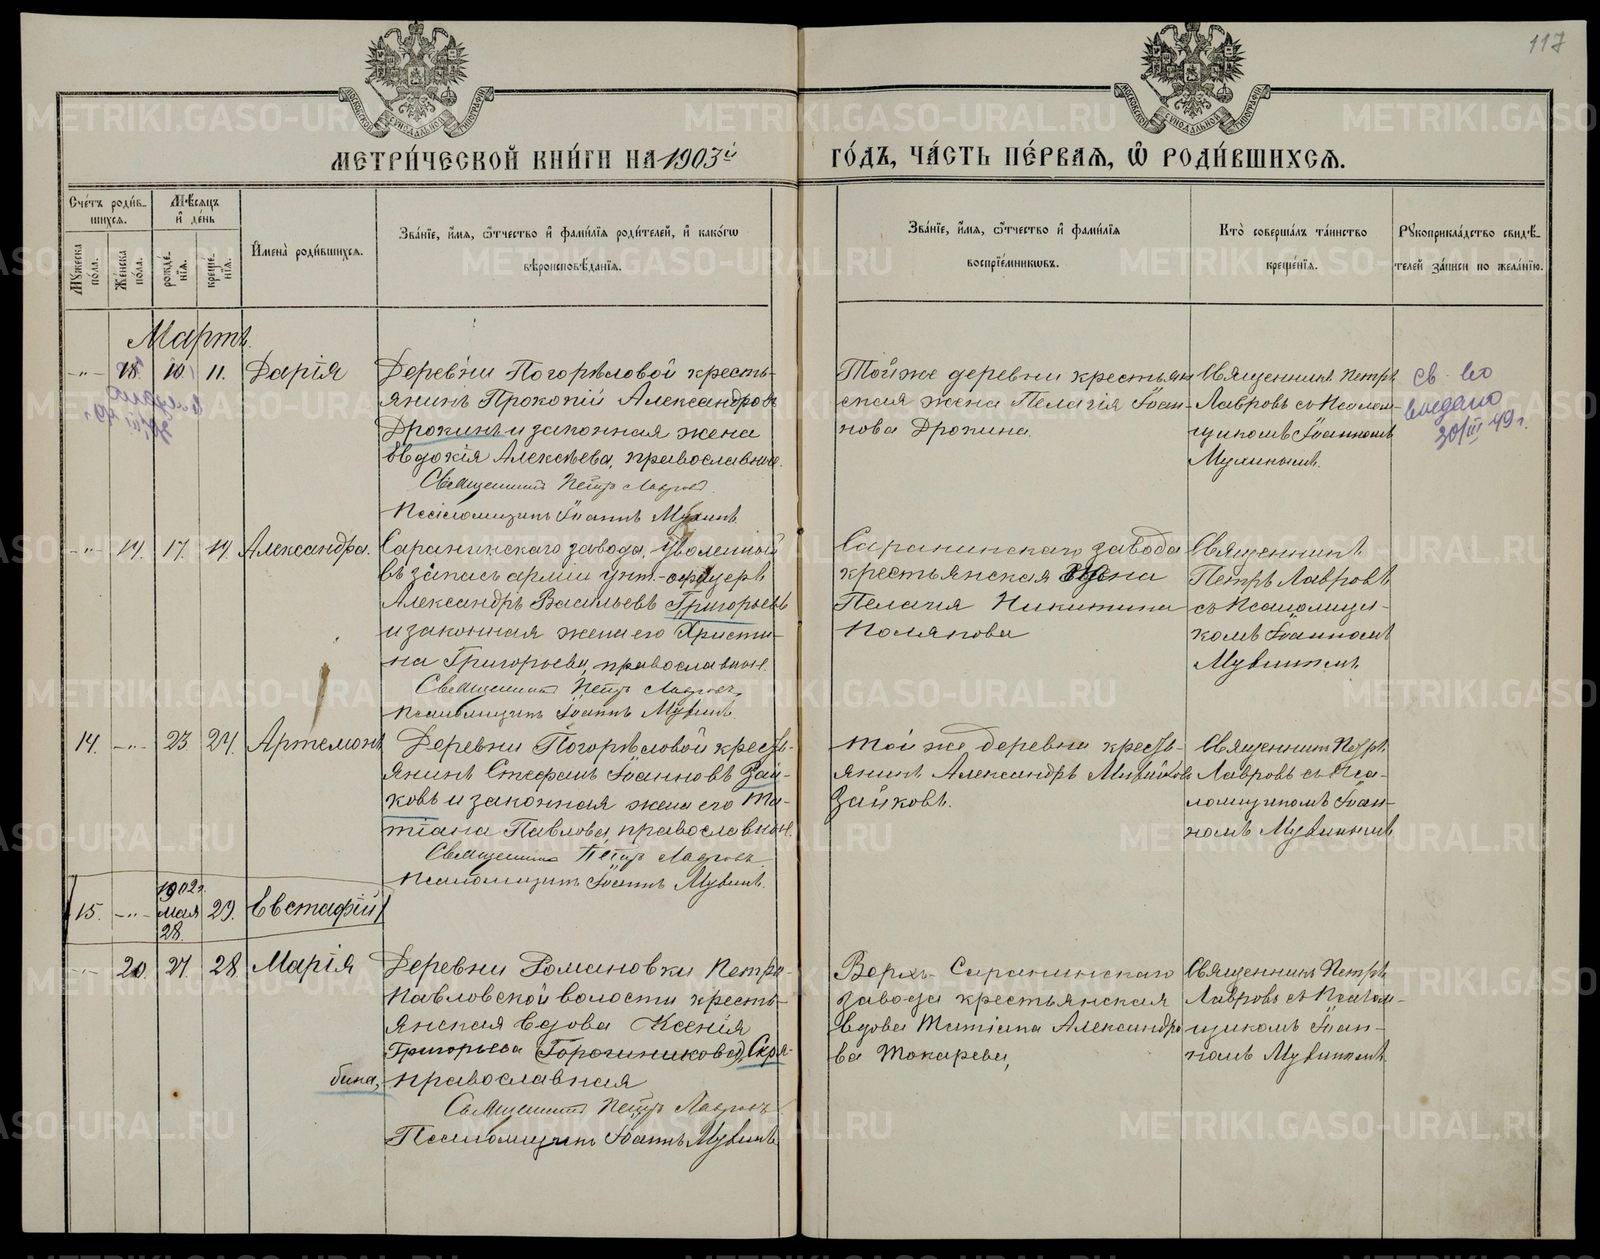 117
МОСКОВСКОЙ СѴНОДАЛЬНОЙ ТИПОГРАФИИ
МОСКОВСКОЙ СѴНОДАЛЬНОЙ ТИПОГРАФИИ
МЕТРИ́ЧЕСКОЙ КНИ́ГИ НА 1903й
ГО́ДЪ, ЧА́СТЬ ПЕ́РВАѦ, Ѡ̂ РОДИ́ВШИХСѦ.
Сче́тъ роди́в-
шихсѧ.
Мꙋ́жеска по́ла.
Же́нска по́ла.
Мѣ́сѧцъ
и де́нь
рожде́нїѧ.
креще́нїѧ.
Имена̀ роди́вшихсѧ.
Зва́нїе, и́мѧ, ѻ́тчество и фами́лїѧ роди́телей, и како́гѡ
вѣроисповѣ́данїѧ.
Зва́нїе, и́мѧ, ѻ́тчество и фами́лїѧ
воспрїе́мникѡвъ.
Кто̀ соверша́лъ та́инство
креще́нїѧ.
Рꙋкоприкла́дство свидѣ́-
телей за́писи по жела́нїю.
Мартъ.
-"- 18. 10. 11. Дарія
Деревни Погорѣловой кресть-
янинъ Прокопій Александровъ
Дрокинъ и законная жена
Евдокія Алексѣева, православные.
Священникъ Петръ Лавровъ
Псаломщикъ Іоаннъ Мувинъ
Той же деревни крестьян-
ская жена Пелагія Іоан-
нова Дрокина.
Священникъ Петръ
Лавровъ съ Псалом-
щикомъ Іоанномъ
св-во
выдано
30/III 49 г.
-"- 19. 17. 19. Александра.
Саранинскаго завода, уволенный
въ запасъ арміи унт.-офицеръ
Александръ Васильевъ Григорьевъ
и законная жена его Христи-
на Григорьева, православные.
Священникъ Петръ Лавровъ
Псаломщикъ Іоаннъ Мувинъ.
Саранинскаго завода
крестьянская жена
Пелагія Никитина
Полякова
Священникъ
Петръ Лавровъ
съ Псаломщи-
комъ Іоанномъ
Мувинымъ
14. -"- 23 24. Артемонъ
Деревни Погорѣловой кресть-
янинъ Стефанъ Іоанновъ Зай-
ковъ и законная жена его Та-
тіана Павлова, православные.
Священникъ Петръ Лавровъ
Псаломщикъ Іоаннъ Мувинъ.
Той же деревни кресть-
янинъ Александръ
Зайковъ.
Священникъ Петръ
Лавровъ съ Пса-
ломщикомъ Іоан-
номъ Мувинымъ
15. -"- 1902 г. мая 28. 29. Евстафій
-"- 20. 27. 28 Марія
Деревни Романовки Петро-
Павловской волости кресть-
янская вдова Ксенія
Григорьева (Горошникова) Скря-
бина, православная
Священникъ Петръ Лавровъ
Псаломщикъ Іоаннъ Мувинъ
Верхъ-Саранинскаго
завода крестьянская
вдова Татіана Александро-
ва Токарева,
Священникъ Петръ
Лавровъ съ Псалом-
щикомъ Іоан-
номъ Мувинымъ
METRIKI.GASO-URAL.RU